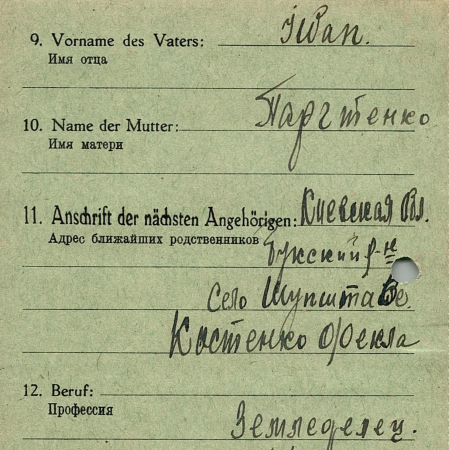 9. Vorname des Vaters: Iван.
Имя отца
10. Name der Mutter:
Имя матери
11. Anschrift der nächsten Angehörigen: Киевская Вл.
Адрес ближайших родственников Букский р-н
Село
Костенко Фекла
12. Beruf:
Профессия
Земледелец.